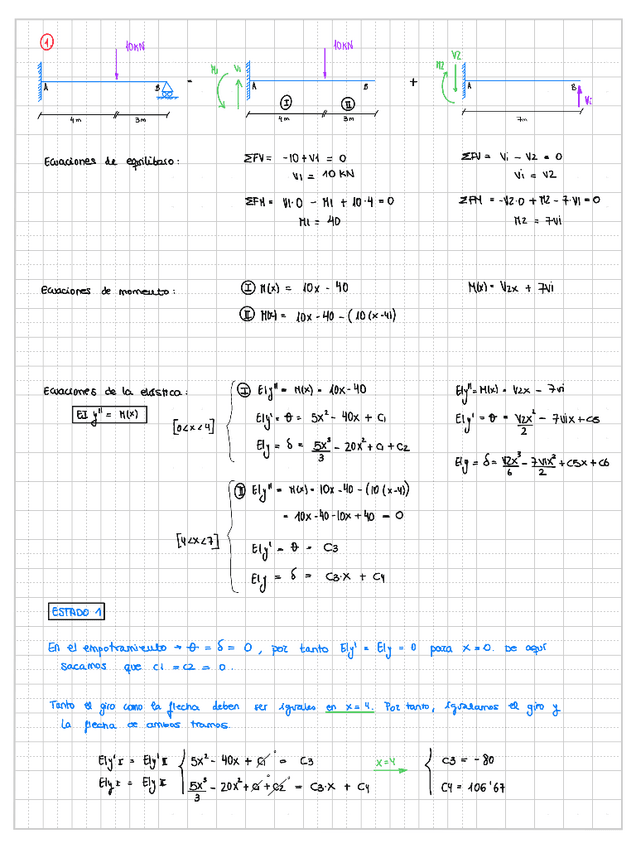 1
10KN
A B
4m 3m
=
M1 V1
10KN
A B
I II
4m 3m
+
M2 V2
A B
Vi
7m
Ecuaciones de equilibrio:
ΣFV = -10 + V1 = 0
V1 = 10 KN
ΣFM = V1·0 - M1 + 10·4 = 0
M1 = 40
ΣFV = Vi - V2 = 0
Vi = V2
ΣFM = -V2·0 + M2 - 7·Vi = 0
M2 = 7Vi
Ecuaciones de momento:
I M(x) = 10x - 40
II M(x) = 10x - 40 - (10(x-4))
M(x) = V2x + 7Vi
Ecuaciones de la elástica:
EI y'' = M(x)
[0<x<4]
I EIy'' = M(x) = 10x - 40
EIy' = θ = 5x² - 40x + C1
EIy = δ = 5x³/3 - 20x² + C1 + C2
[4<x<7]
II EIy'' = M(x) = 10x - 40 - (10(x-4))
= 10x - 40 - 10x + 40 = 0
EIy' = θ = C3
EIy = δ = C3·x + C4
EIy'' = M(x) = V2x - 7Vi
EIy' = θ = V2x²/2 - 7Vix + C5
EIy = δ = V2x³/6 - 7Vix²/2 + C5x + C6
ESTADO 1
En el empotramiento → θ = δ = 0, por tanto EIy' = EIy = 0 para x = 0. De aquí
sacamos que C1 = C2 = 0.
Tanto el giro como la flecha deben ser iguales en x = 4. Por tanto, igualamos el giro y
la flecha de ambos tramos.
EIy'I = EIy'II
EIyI = EIyII
5x² - 40x + C1 = C3
5x³/3 - 20x² + C1 + C2 = C3·x + C4
x=4
C3 = -80
C4 = 106'67